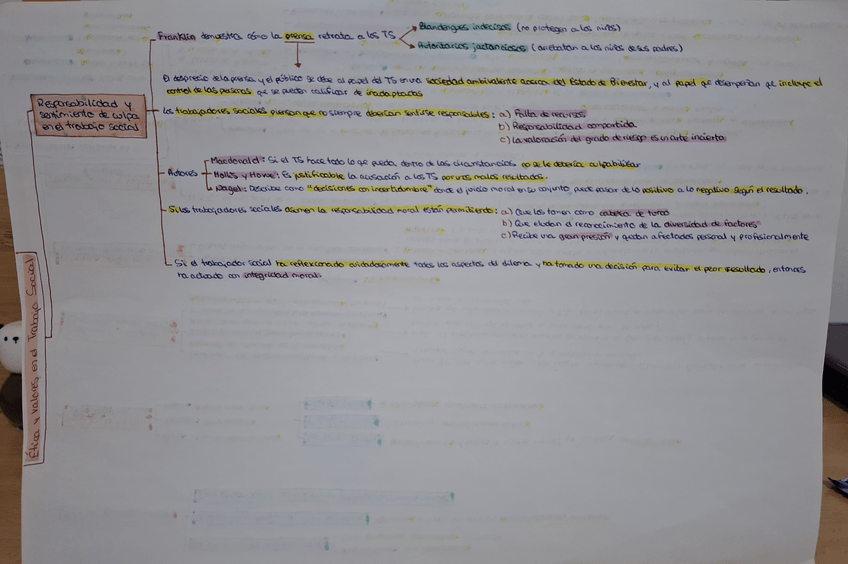 Ética y valores en el Trabajo Social
Responsabilidad y
sentimiento de culpa
en el trabajo social
Franklin demuestra cómo la prensa retrata a los TS
Blandengues indecisos (no protegen a los niños)
Autoritarios jactanciosos (arrebatan a los niños de sus padres)
El desprecio de la prensa y el público se debe al papel del TS en una sociedad ambivalente acerca del Estado de Bienestar, y al papel qe desempeñan qe incluye el
control de las personas qe se pueden calificar de inadaptadas
Los trabajadores sociales piensan que no siempre deberían sentirse responsables: a) Falta de recursos
b) Responsabilidad compartida
c) La valoración del grado de riesgo es un arte incierto
Autores
Macdonald: Si el TS hace todo lo qe pueda, dentro de las circunstancias no se le debería culpabilizar
Hollis y Howe: Es justificable la acusación a los TS por unos malos resultados.
Nagel: Describe como "decisiones con incertidumbre" donde el juicio moral en su conjunto puede pasar de lo positivo a lo negativo según el resultado.
Si los trabajadores sociales asumen la responsabilidad moral están permitiendo: a) Que los tomen como cabeza de turco
b) Que eludan el reconocimiento de la diversidad de factores
c) Recibe una gran presión y quedan afectados personal y profesionalmente
Si el trabajador social ha reflexionado cuidadosamente todos los aspectos del dilema y ha tomado una decisión para evitar el peor resultado, entonces
ha actuado con integridad moral.